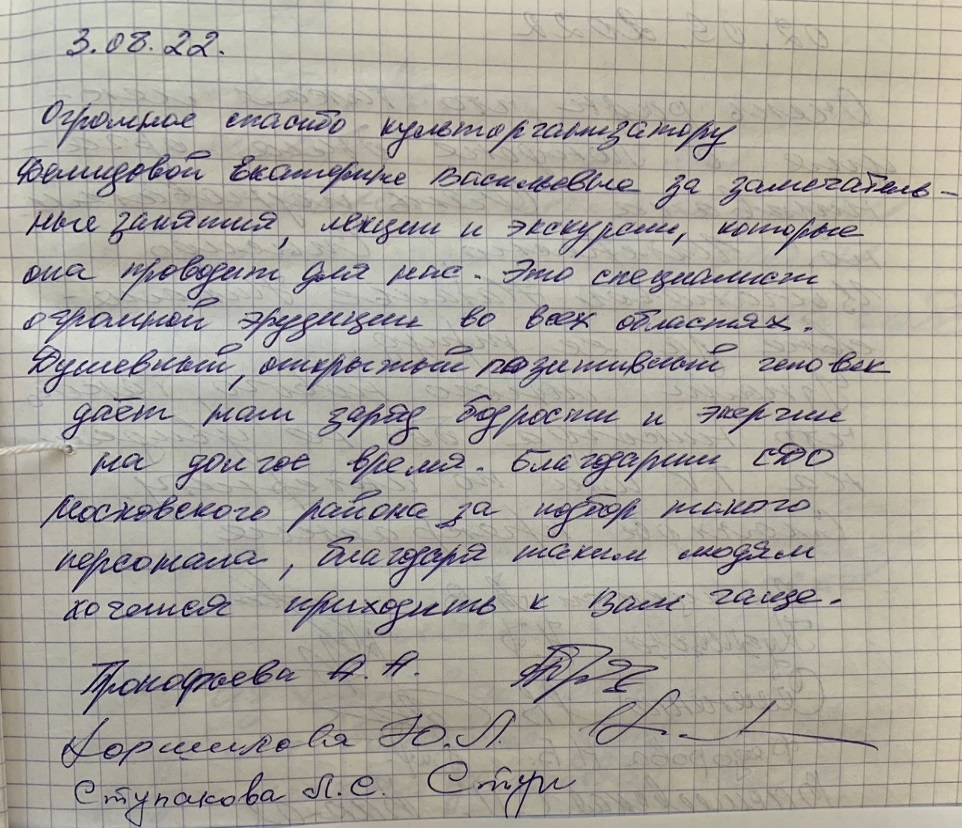 3.08.22.
Огромное спасибо культорганизатору
Демидовой Екатерине Васильевне за замечатель-
ные занятия, лекции и экскурсии, которые
она проводит для нас. Это специалист
огромной эрудиции во всех областях.
Душевный, открытый позитивный человек
даёт нам заряд бодрости и энергии
на долгое время. Благодарим СДО
Московского района за подбор такого
персонала, благодаря таким людям
хочется приходить к Вам чаще.
Прокофьева А. А.
Коршикова Ю. Л.
Ступакова Л. С. Ступ